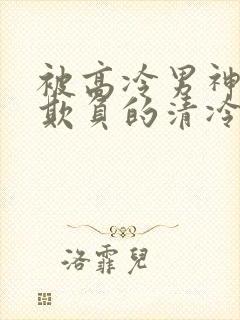 被高冷男神
欺负的清冷
洛霏儿